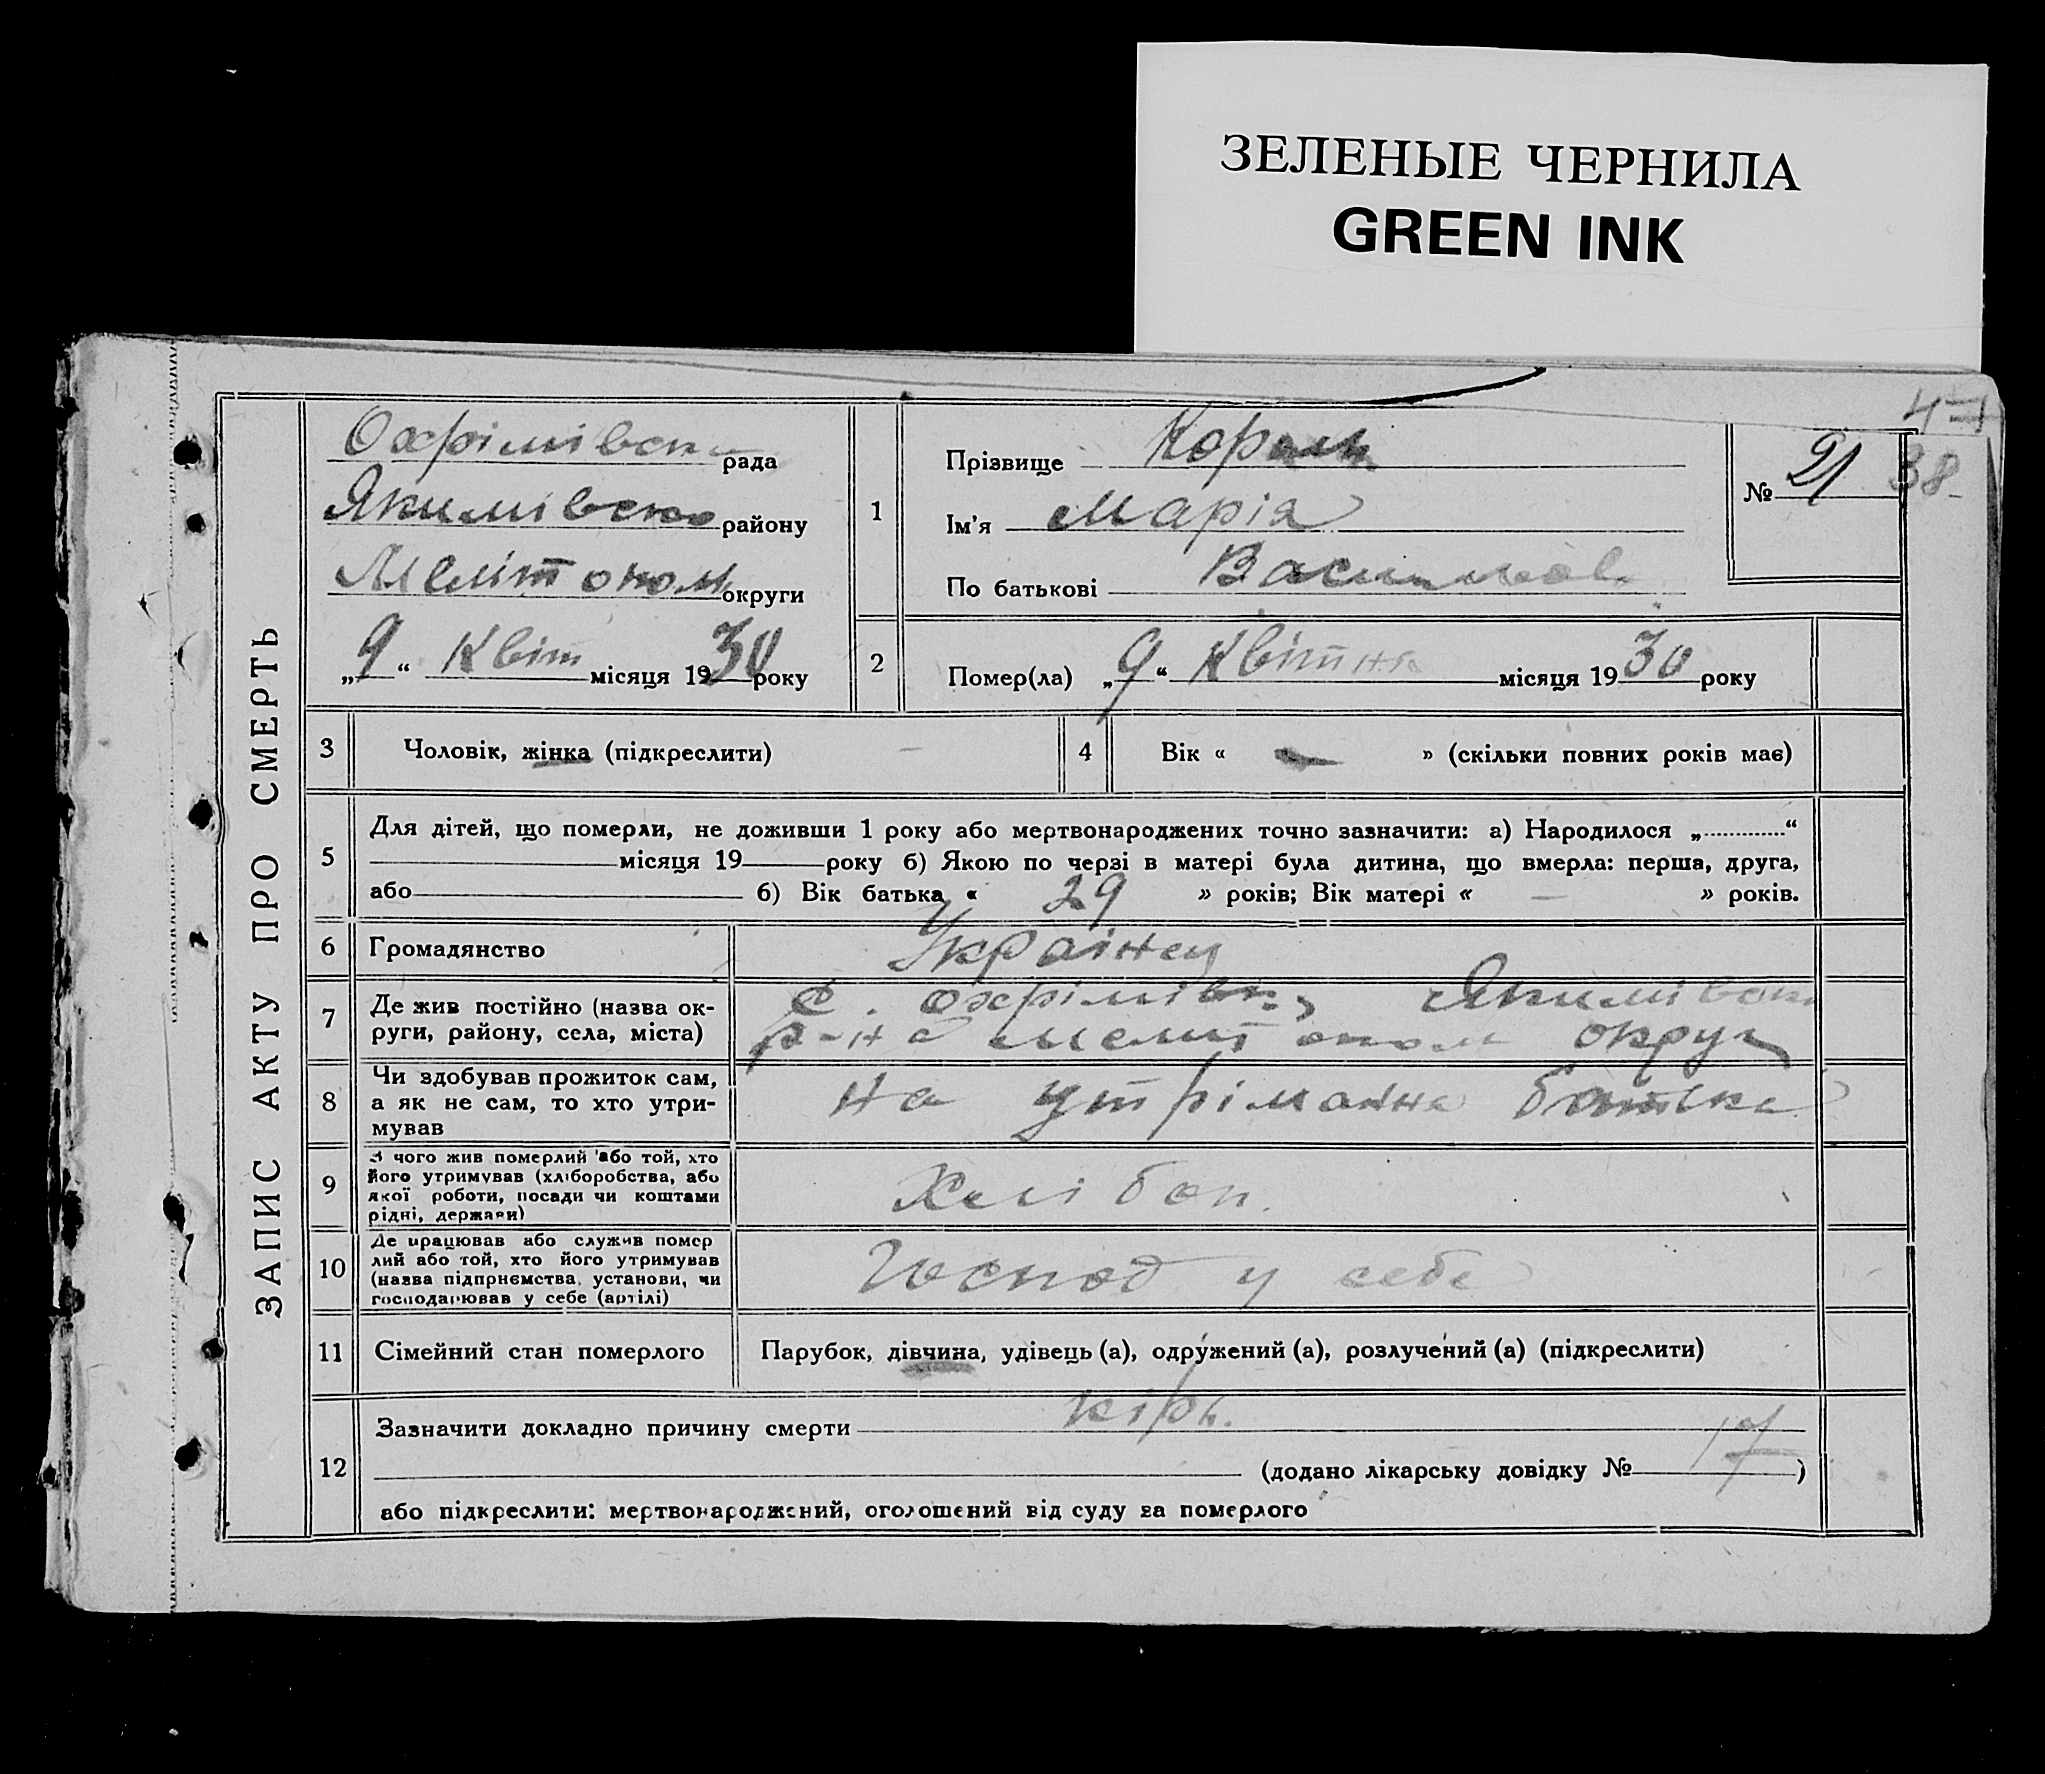 ЗЕЛЕНЫЕ ЧЕРНИЛА
GREEN INK
47
38
ЗАПИС АКТУ ПРО СМЕРТЬ
Охрімівськ рада
Якимівсько району
Меліт опом округи
„9“ Квіт місяця 1930 року
1
Прізвище Король
Ім'я Марія
По батькові
№ 21
2
Помер(ла) „9“ Квітня місяця 1930 року
3
Чоловік, жінка (підкреслити)
4
Вік « » (скільки повних років має)
5
Для дітей, що померли, не доживши 1 року або мертвонароджених точно зазначити: а) Народилося „ “
місяця 19 року б) Якою по черзі в матері була дитина, що вмерла: перша, друга,
або б) Вік батька « 29 » років; Вік матері « — » років.
6
Громадянство Українец
7
Де жив постійно (назва ок-
руги, району, села, міста)
с. Охрімівк, Якимівськ
р-на меліт опол округ
8
Чи здобував прожиток сам,
а як не сам, то хто утри-
мував
на утріманне батька
9
З чого жив померлий або той, хто
його утримував (хліборобства, або
якої роботи, посади чи коштами
рідні, держави)
Хлі боп.
10
Де працював або служив помер
лий або той, хто його утримував
(назва підприємства, установи, чи
господарював у себе (артілі)
Господ у себе
11
Сімейний стан померлого
Парубок, дівчина, удівець (а), одружений (а), розлучений (а) (підкреслити)
12
Зазначити докладно причину смерти кірь.
(додано лікарську довідку № 17)
або підкреслити: мертвонароджений, оголошений від суду за померлого